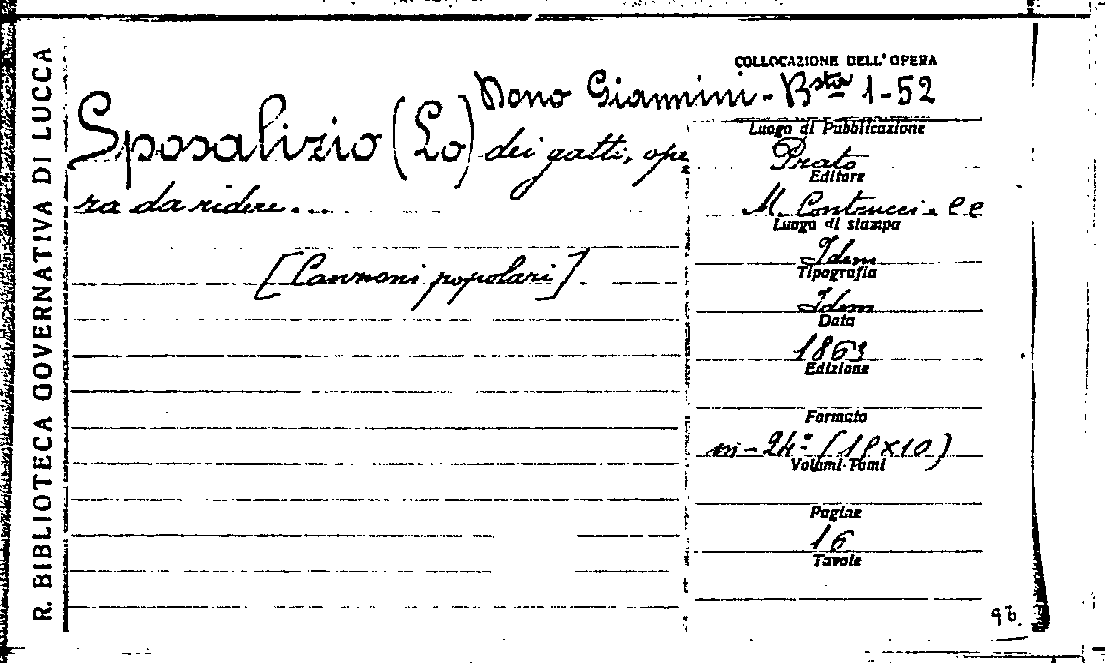 R. BIBLIOTECA GOVERNATIVA DI LUCCA
COLLOCAZIONE DELL' OPERA
Dono Giannini - Bsta 1-52
Sposalizio (Lo) dei gatti, ope
ra da ridere...
[Canzoni popolari].
Luogo di Pubblicazione
Prato
Editore
M. Contrucci e CC
Luogo di stampa
Idem
Tipografia
Idem
Data
1863
Edizione
Formato
in-24º (18×10)
Volumi-Tomi
Pagine
16
Tavole